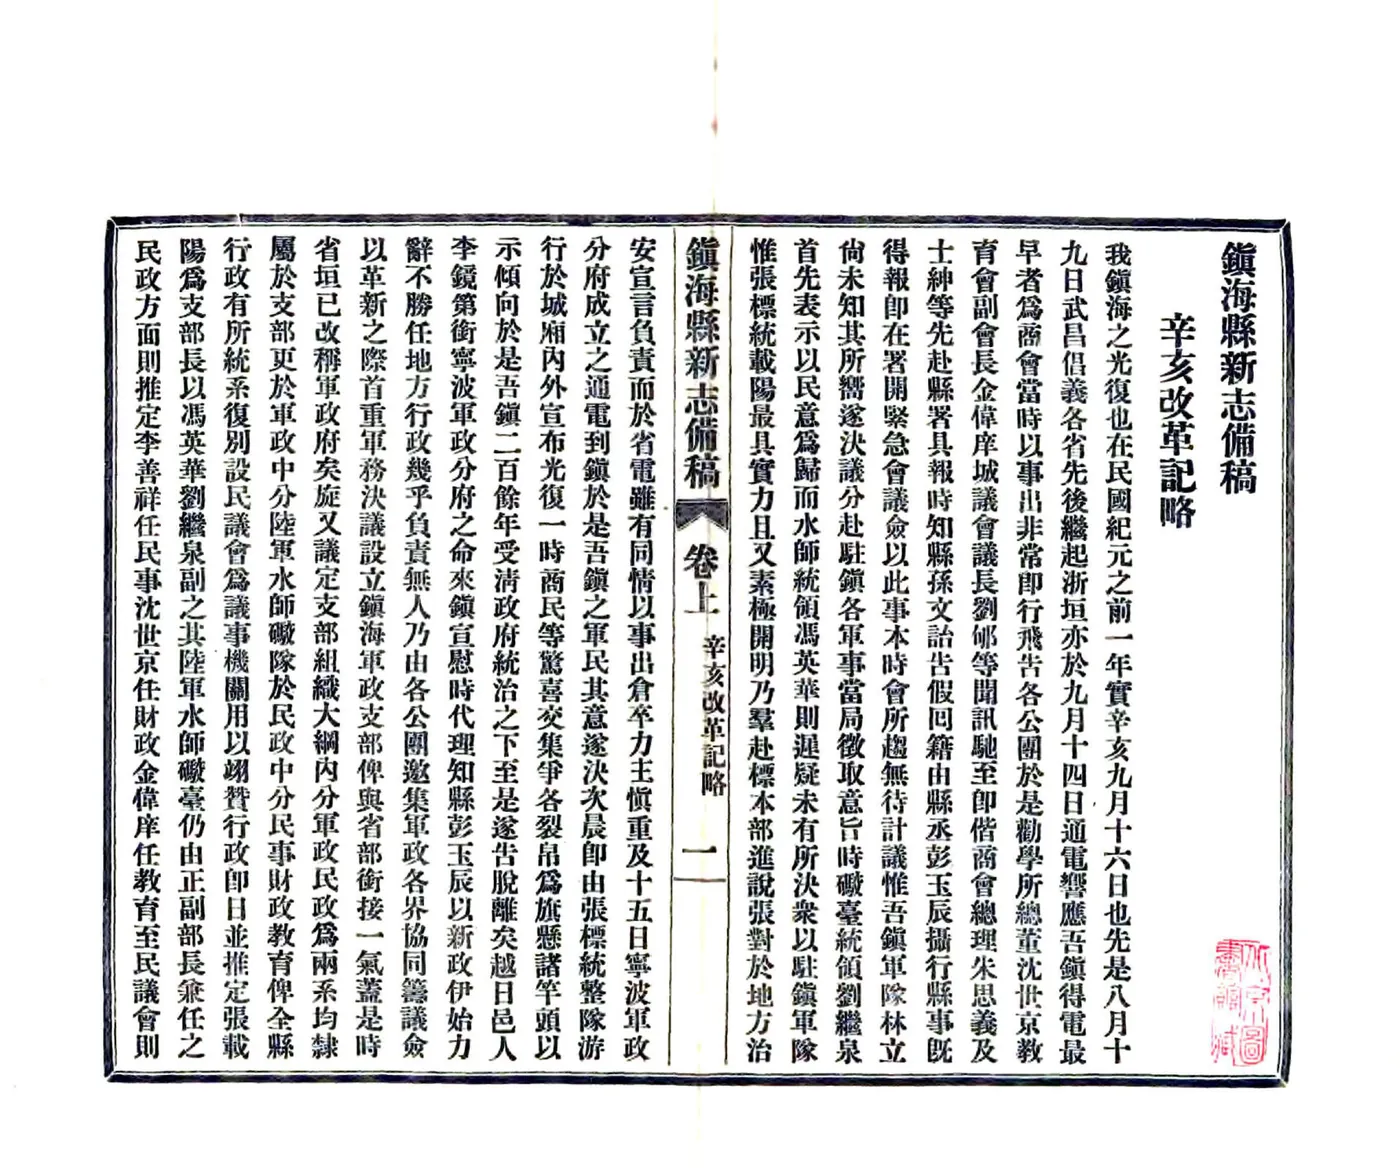 鎮海縣新志備稿
辛亥改革記略
我鎮海之光復也在民國紀元之前一年實辛亥九月十六日也先是八月十
九日武昌倡義各省先後繼起浙垣亦於九月十四日通電響應吾鎮得電最
早者爲商會當時以事出非常卽行飛吿各公團於是勸學所總董沈世京教
育會副會長金偉庠城議會議長劉郇等聞訊馳至卽偕商會總理朱思義及
士紳等先赴縣署具報時知縣孫文詒吿假回籍由縣丞彭玉辰攝行縣事旣
得報卽在署開緊急會議僉以此事本時會所趨無待計議惟吾鎮軍隊林立
尙未知其所嚮遂決議分赴駐鎮各軍事當局徵取意旨時礮臺統領劉繼泉
首先表示以民意爲歸而水師統領馮英華則遲疑未有所決衆以駐鎮軍隊
惟張標統載陽最具實力且又素極開明乃羣赴標本部進說張對於地方治
鎮海縣新志備稿 卷上 辛亥改革記略 一
安宣言負責而於省電雖有同情以事出倉卒力主愼重及十五日寧波軍政
分府成立之通電到鎮於是吾鎮之軍民其意遂決次晨卽由張標統整隊游
行於城廂內外宣布光復一時商民等驚喜交集爭各裂帛爲旗懸諸竿頭以
示傾向於是吾鎮二百餘年受淸政府統治之下至是遂吿脫離矣越日邑人
李鏡第銜寧波軍政分府之命來鎮宣慰時代理知縣彭玉辰以新政伊始力
辭不勝任地方行政幾乎負責無人乃由各公團邀集軍政各界協同籌議僉
以革新之際首重軍務決議設立鎮海軍政支部俾與省部銜接一氣蓋是時
省垣已改稱軍政府矣旋又議定支部組織大綱內分軍政民政爲兩系均隸
屬於支部更於軍政中分陸軍水師礮隊於民政中分民事財政教育俾全縣
行政有所統系復別設民議會爲議事機關用以翊贊行政卽日並推定張載
陽爲支部長以馮英華劉繼泉副之其陸軍水師礮臺仍由正副部長兼任之
民政方面則推定李善祥任民事沈世京任財政金偉庠任教育至民議會則